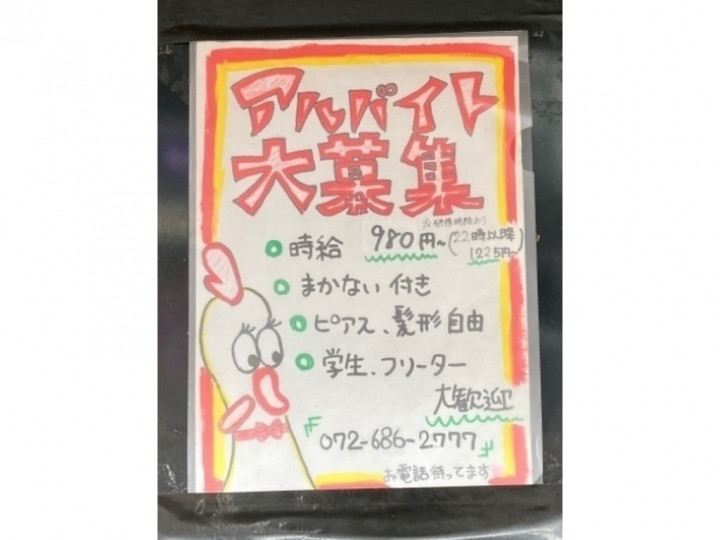 アルバイト
大募集
※研修時給あり
時給 980円~(22時以降 1225円~)
まかない付き
ピアス、髪形自由
学生、フリーター
大歓迎
『072-686-2777』
お電話待ってます